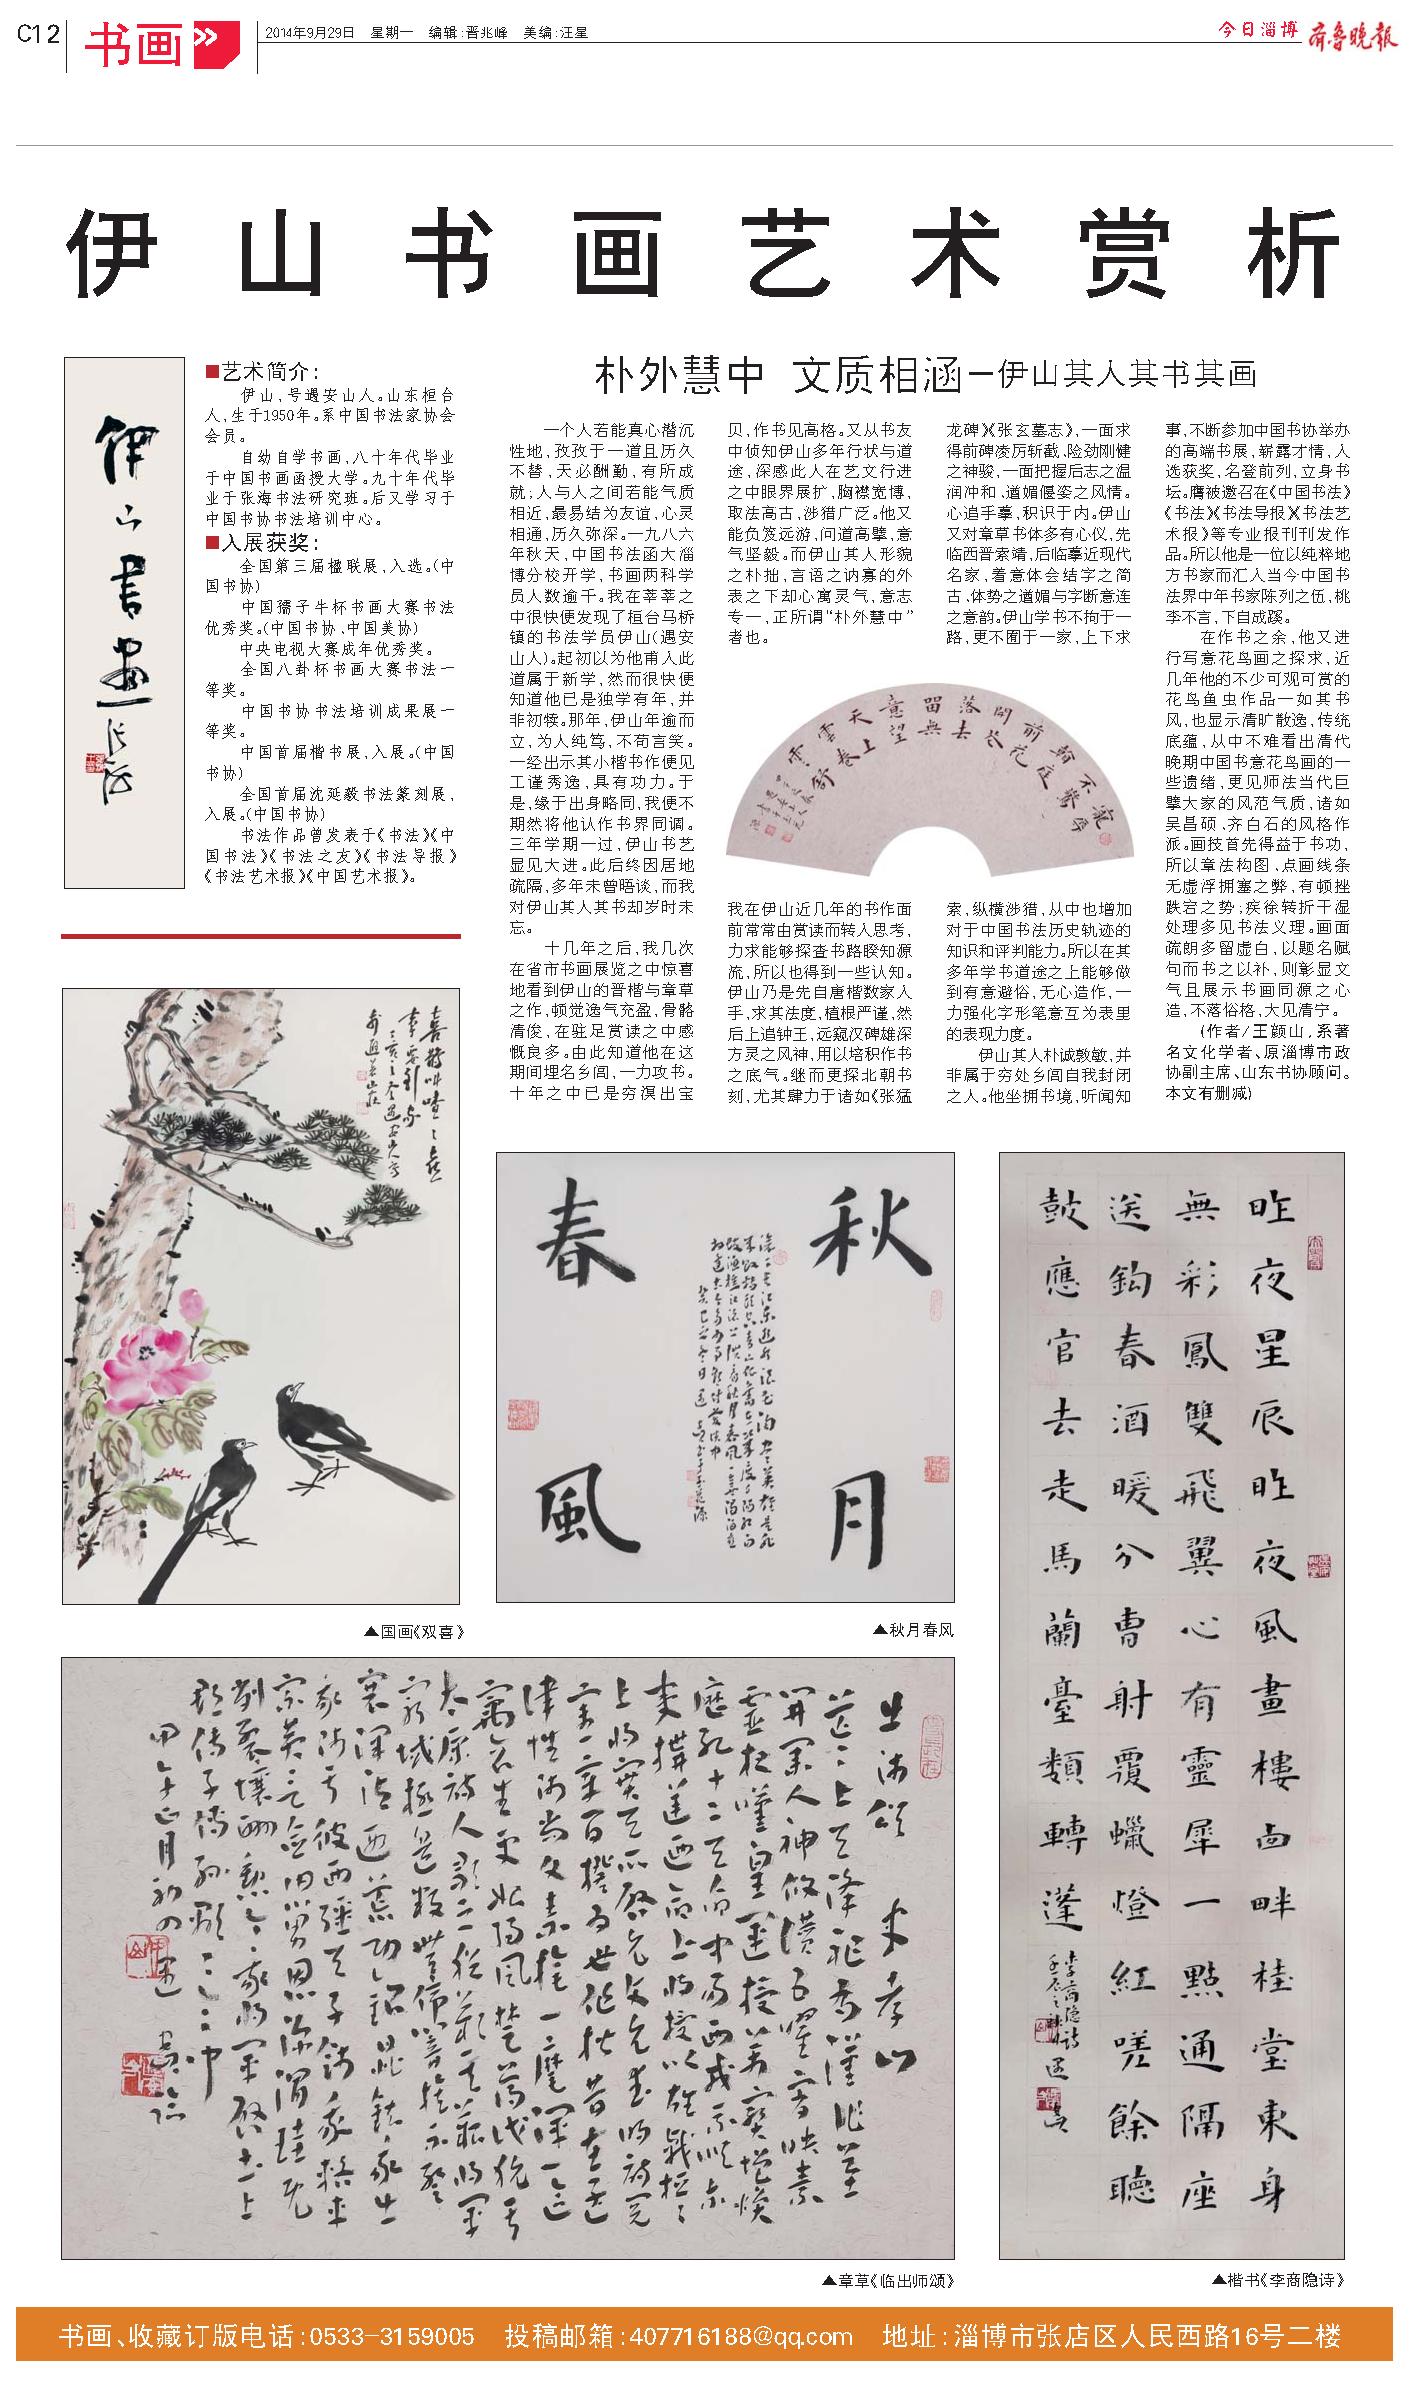 C12
书画
2014年9月29日 星期一 编辑:晋兆峰 美编:汪星
今日淄博 齐鲁晚报
伊山书画艺术赏析
伊山书画
■艺术简介:
伊山,号遇安山人。山东桓台
人,生于1950年。系中国书法家协会
会员。
自幼自学书画,八十年代毕业
于中国书画函授大学。九十年代毕
业于张海书法研究班。后又学习于
中国书协书法培训中心。
■入展获奖:
全国第三届楹联展,入选。(中
国书协)
中国孺子牛杯书画大赛书法
优秀奖。(中国书协、中国美协)
中央电视大赛成年优秀奖。
全国八卦杯书画大赛书法一
等奖。
中国书协书法培训成果展一
等奖。
中国首届楷书展,入展。(中国
书协)
全国首届沈延毅书法篆刻展,
入展。(中国书协)
书法作品曾发表于《书法》《中
国书法》《书法之友》《书法导报》
《书法艺术报》《中国艺术报》。
朴外慧中 文质相涵—伊山其人其书其画
一个人若能真心潜沉
性地,孜孜于一道且历久
不替,天必酬勤,有所成
就;人与人之间若能气质
相近,最易结为友谊,心灵
相通,历久弥深。一九八六
年秋天,中国书法函大淄
博分校开学,书画两科学
员人数逾千。我在莘莘之
中很快便发现了桓台马桥
镇的书法学员伊山(遇安
山人)。起初以为他甫入此
道属于新学,然而很快便
知道他已是独学有年,并
非初犊。那年,伊山年逾而
立,为人纯笃,不苟言笑。
一经出示其小楷书作便见
工谨秀逸,具有功力。于
是,缘于出身略同,我便不
期然将他认作书界同调。
三年学期一过,伊山书艺
显见大进。此后终因居地
疏隔,多年未曾晤谈,而我
对伊山其人其书却岁时未
忘。
十几年之后,我几次
在省市书画展览之中惊喜
地看到伊山的晋楷与章草
之作,顿觉逸气充盈,骨骼
清俊,在驻足赏读之中感
慨良多。由此知道他在这
期间埋名乡闾,一力攻书。
十年之中已是穷溟出宝
贝,作书见高格。又从书友
中侦知伊山多年行状与道
途,深感此人在艺文行进
之中眼界展扩,胸襟宽博,
取法高古,涉猎广泛。他又
能负笈远游,问道高擘,意
气坚毅。而伊山其人形貌
之朴拙,言语之讷寡的外
表之下却心寓灵气,意志
专一,正所谓“朴外慧中”
者也。
我在伊山近几年的书作面
前常常由赏读而转入思考,
力求能够探查书路暌知源
流,所以也得到一些认知。
伊山乃是先自唐楷数家入
手,求其法度,植根严谨,然
后上追钟王,远窥汉碑雄深
方灵之风神,用以培积作书
之底气。继而更探北朝书
刻,尤其肆力于诸如《张猛
龙碑》《张玄墓志》,一面求
得前碑凌厉斩截、险劲刚健
之神骏,一面把握后志之温
润冲和、遒媚偃姿之风情。
心追手摹,积识于内。伊山
又对章草书体多有心仪,先
临西晋索靖,后临摹近现代
名家,着意体会结字之简
古、体势之遒媚与字断意连
之意韵。伊山学书不拘于一
路,更不囿于一家,上下求
索,纵横涉猎,从中也增加
对于中国书法历史轨迹的
知识和评判能力。所以在其
多年学书道途之上能够做
到有意避俗,无心造作,一
力强化字形笔意互为表里
的表现力度。
伊山其人朴诚敦敏,并
非属于穷处乡闾自我封闭
之人。他坐拥书境,听闻知
事,不断参加中国书协举办
的高端书展,崭露才情,入
选获奖,名登前列,立身书
坛。膺被邀召在《中国书法》
《书法》《书法导报》《书法艺
术报》等专业报刊刊发作
品。所以他是一位以纯粹地
方书家而汇入当今中国书
法界中年书家陈列之伍,桃
李不言,下自成蹊。
在作书之余,他又进
行写意花鸟画之探求,近
几年他的不少可观可赏的
花鸟鱼虫作品一如其书
风,也显示清旷散逸,传统
底蕴,从中不难看出清代
晚期中国书意花鸟画的一
些遗绪,更见师法当代巨
擘大家的风范气质,诸如
吴昌硕、齐白石的风格作
派。画技首先得益于书功,
所以章法构图、点画线条
无虚浮拥塞之弊,有顿挫
跌宕之势;疾徐转折干湿
处理多见书法义理。画面
疏朗多留虚白,以题名赋
句而书之以补,则彰显文
气且展示书画同源之心
造,不落俗格,大见清宁。
(作者/王颜山,系著
名文化学者、原淄博市政
协副主席、山东书协顾问。
本文有删减)
宠辱不惊
看庭前花開
花落去留無意望
天上雲卷雲舒
▲国画《双喜》
秋月
春風
▲秋月春风
出师颂
▲章草《临出师颂》
昨夜星辰昨夜風畫樓西畔桂堂東身
無彩鳳雙飛翼心有靈犀一點通隔座
送鈎春酒暖分曹射覆蠟燈紅嗟餘聽
鼓應官去走馬蘭臺類轉蓬
李商隐诗
▲楷书《李商隐诗》
书画、收藏订版电话:0533-3159005 投稿邮箱:407716188@qq.com 地址:淄博市张店区人民西路16号二楼